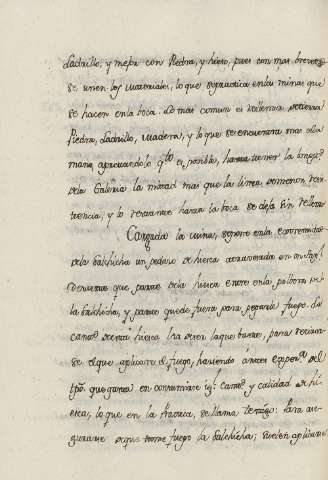 Ladrillo, y mejor con Piedra, y hieso, pues con mas brevedad
se unen los materiales, lo que se practica en las minas que
se hacen en la roca. Lo mas comun es rellenar de tierra
Piedra, Ladrillo, madera, y lo que se encuentra mas a la
mano, apretandolo qto. es posible, hasta tener la longd.
de la Galeria la mitad mas que la linea de menor resis
tencia, y lo restante hasta la boca se deja sin rellenar
Cargada la mina, se pone en la extremidad
de la salchicha un pedazo de hiesca atravesada en
que parte de la hiesca entre en la polbora de
la salchicha, y parte quede fuera para pegarla fuego. La
cantd. de esta hiesca ha de ser la que baste, para retirar
se el que aplicare el fuego, haviendo antes experimdo. el
tpo. que gasta en consumirse igl. cantd. y calidad de hi
esca, lo que en la Practica, se llama testigo: Para ase
gurarse de que tome fuego la salchicha, suelen aplicarse